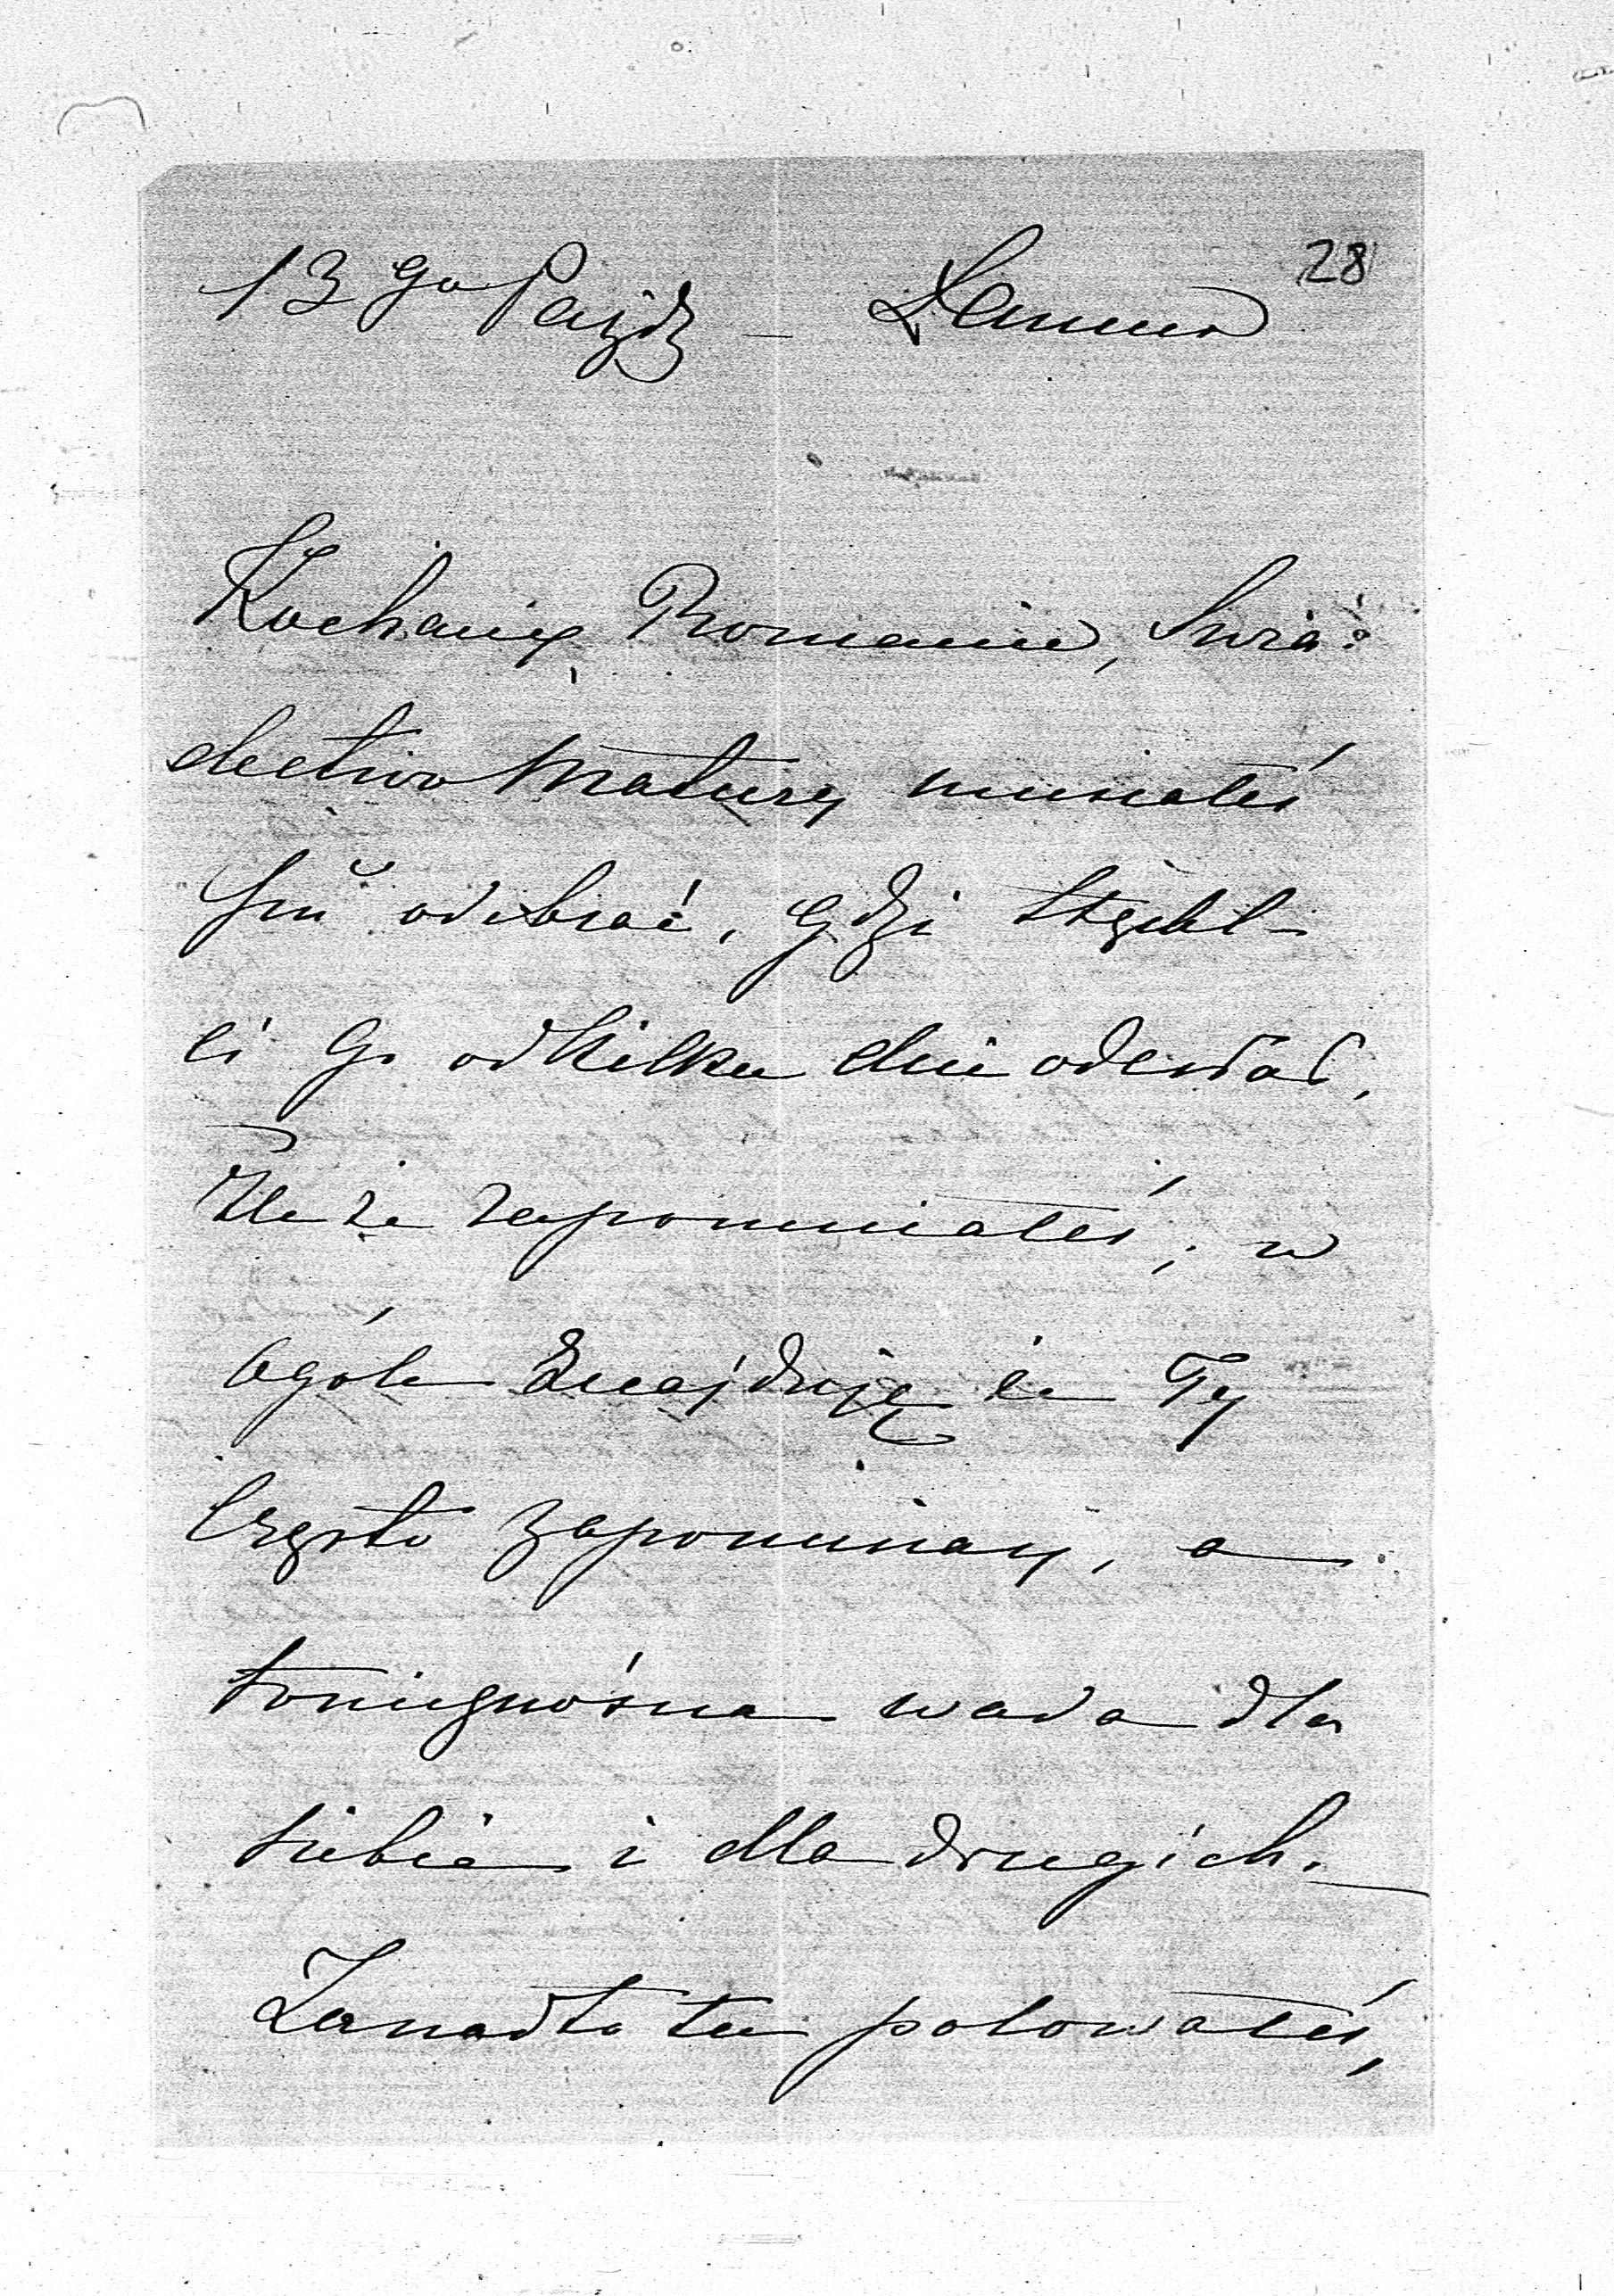 13 go Paźdz – Łańcut 28
Kochany Romanie, Świa:
dectwo Matury musiałeś
Już odebrać, gdzi
Ci Go od kilku dni odesłać,
Źle że zapomniałeś; w
ogóle Znajduję że Ty
Często zapominasz, a
to nieznośna wada dla
siebie i dla drugich. –
Zanadto tu polowałeś,